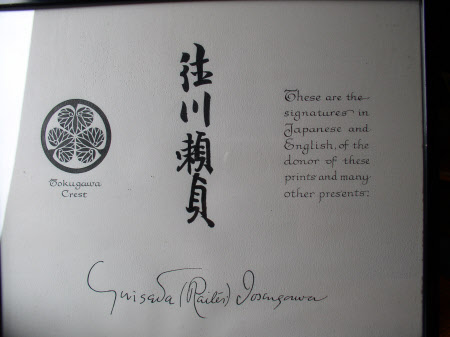 Tokugawa
Crest
徳川頼貞
These are the
signatures in
Japanese and
English, of the
donor of these
prints and many
other presents.
Yorisada (Raitei) Tokugawa